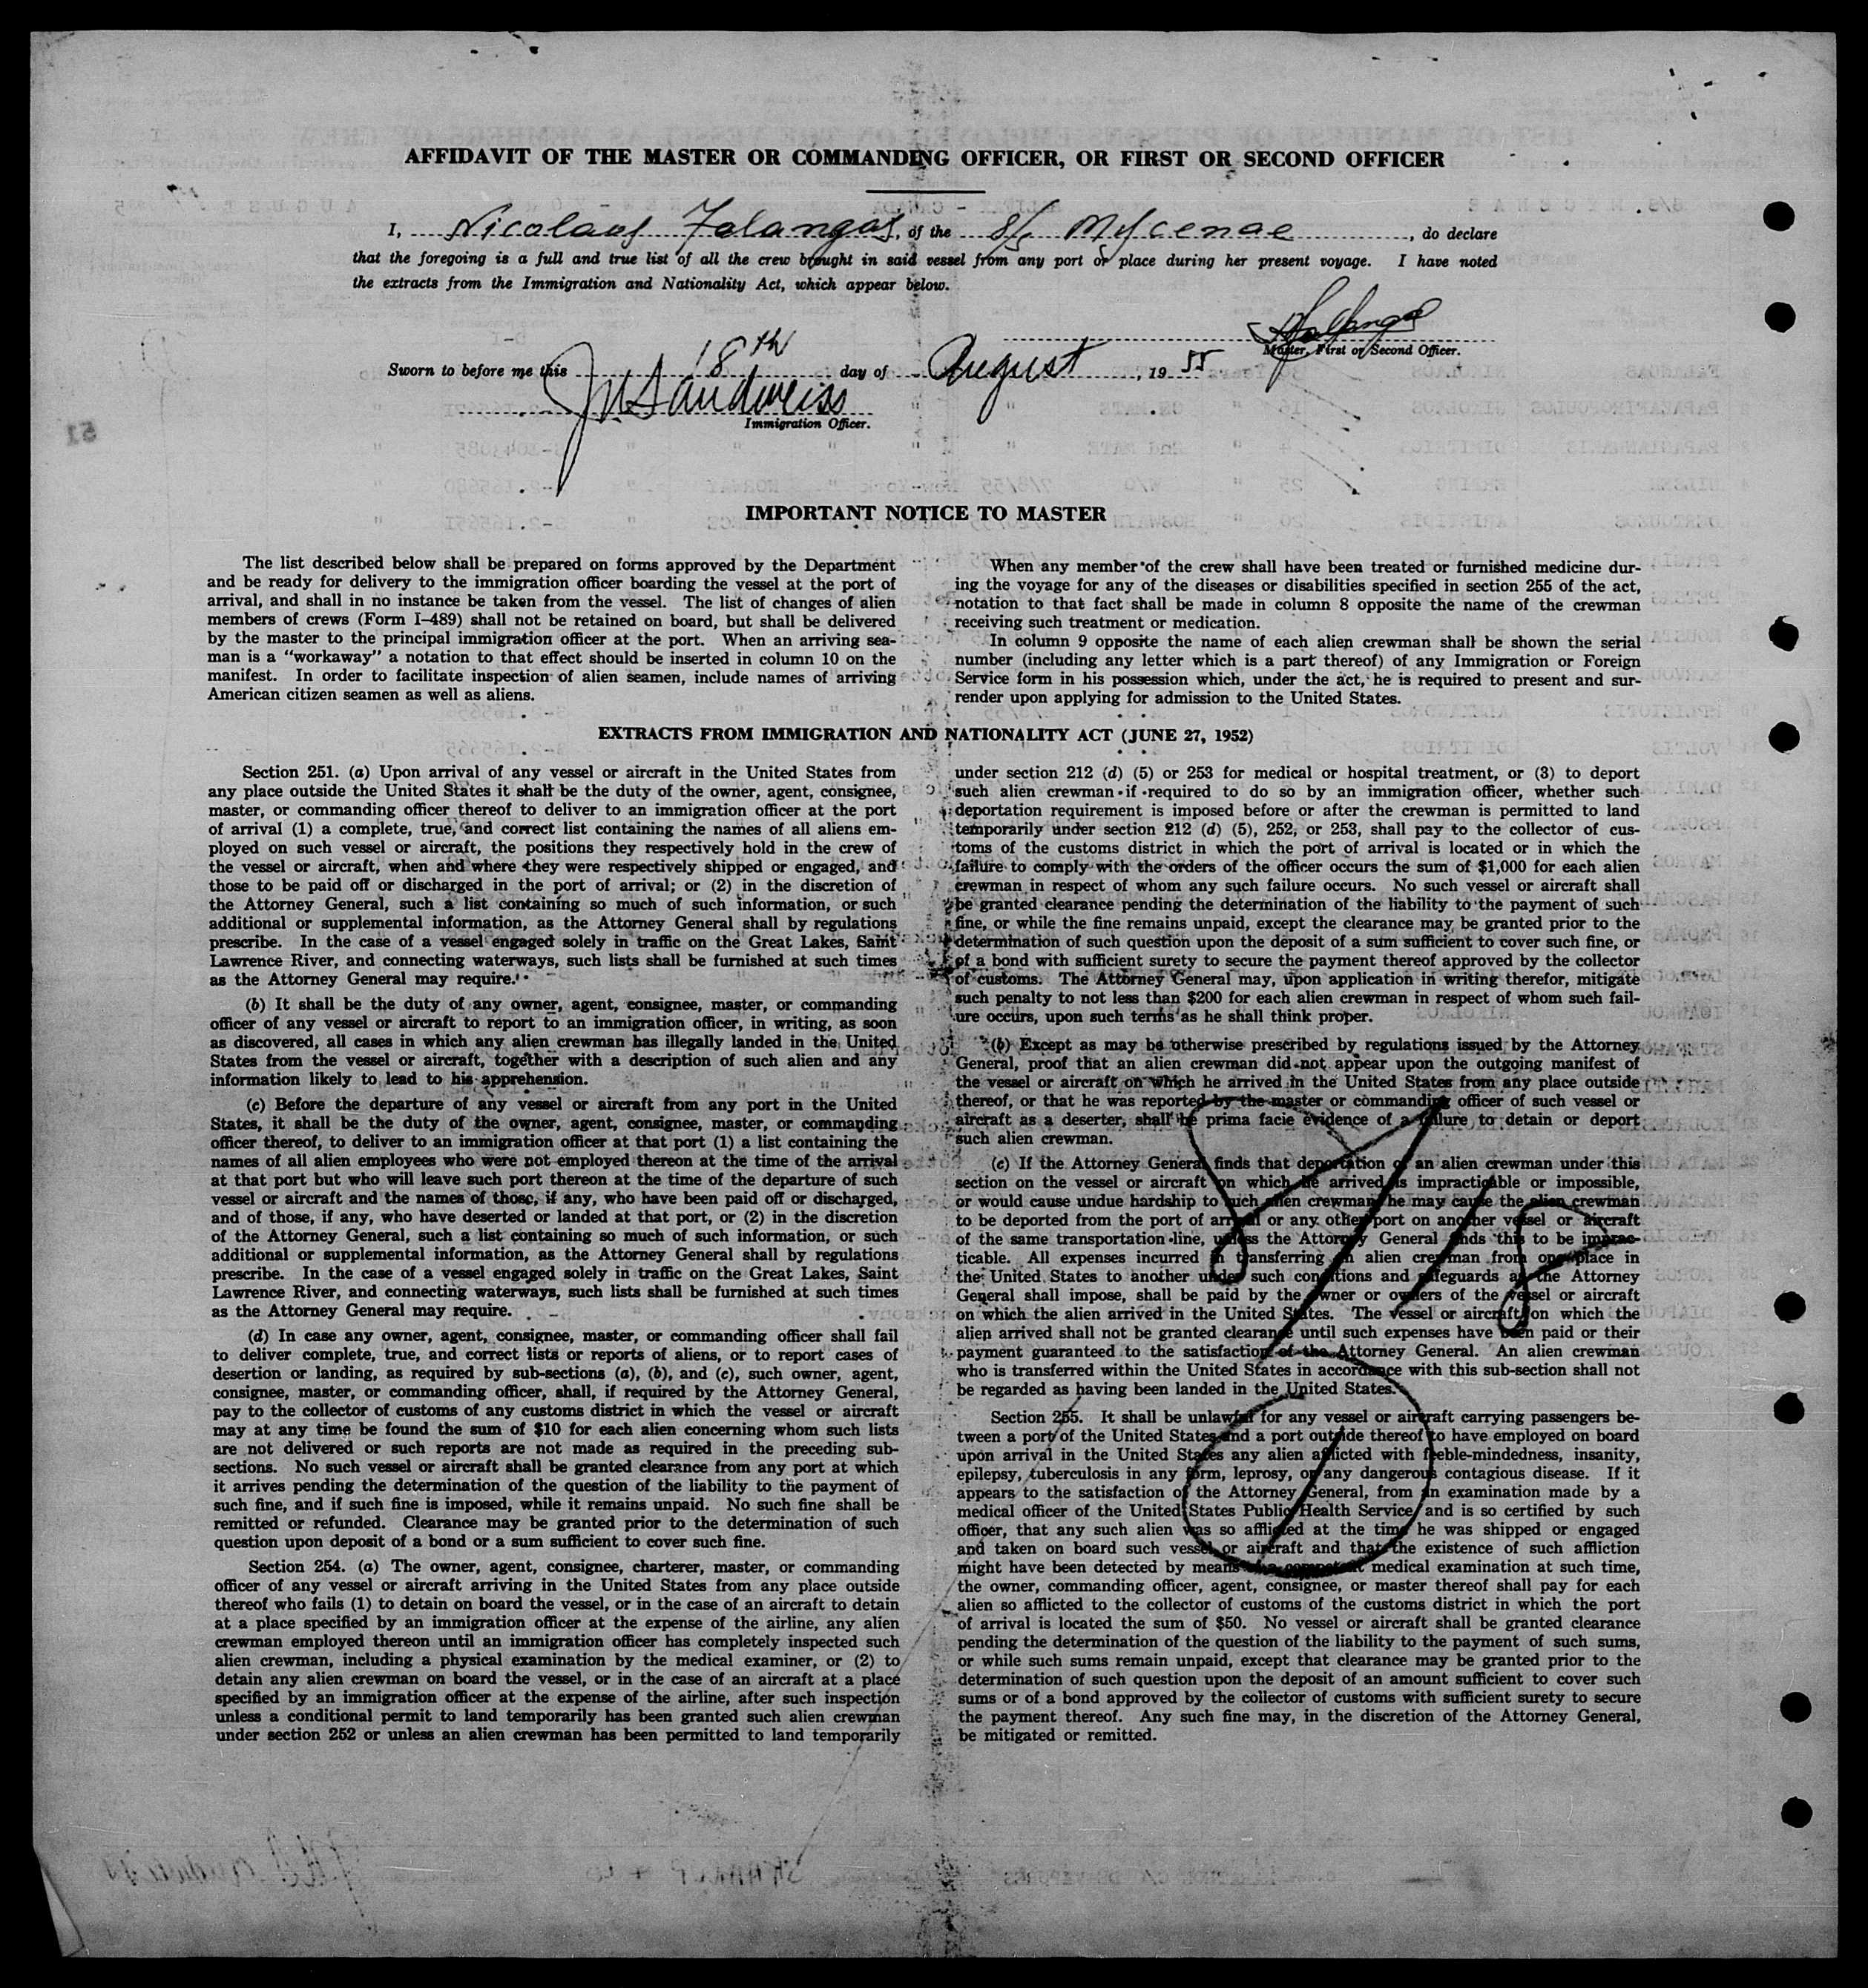 AFFIDAVIT OF THE MASTER OR COMMANDING OFFICER, OR FIRST OR SECOND OFFICER
I, Nicolaos Falangas, of the S/S Mycenae, do declare
that the foregoing is a full and true list of all the crew brought in said vessel from any port or place during her present voyage. I have noted
the extracts from the Immigration and Nationality Act, which appear below.
Master, First or Second Officer.
Sworn to before me this 18th day of August, 19 55
J. W. Sandweiss
Immigration Officer.
51
IMPORTANT NOTICE TO MASTER
The list described below shall be prepared on forms approved by the Department
and be ready for delivery to the immigration officer boarding the vessel at the port of
arrival, and shall in no instance be taken from the vessel. The list of changes of alien
members of crews (Form I–489) shall not be retained on board, but shall be delivered
by the master to the principal immigration officer at the port. When an arriving sea-
man is a "workaway" a notation to that effect should be inserted in column 10 on the
manifest. In order to facilitate inspection of alien seamen, include names of arriving
American citizen seamen as well as aliens.
When any member of the crew shall have been treated or furnished medicine dur-
ing the voyage for any of the diseases or disabilities specified in section 255 of the act,
notation to that fact shall be made in column 8 opposite the name of the crewman
receiving such treatment or medication.
In column 9 opposite the name of each alien crewman shall be shown the serial
number (including any letter which is a part thereof) of any Immigration or Foreign
Service form in his possession which, under the act, he is required to present and sur-
render upon applying for admission to the United States.
EXTRACTS FROM IMMIGRATION AND NATIONALITY ACT (JUNE 27, 1952)
Section 251. (a) Upon arrival of any vessel or aircraft in the United States from
any place outside the United States it shall be the duty of the owner, agent, consignee,
master, or commanding officer thereof to deliver to an immigration officer at the port
of arrival (1) a complete, true, and correct list containing the names of all aliens em-
ployed on such vessel or aircraft, the positions they respectively hold in the crew of
the vessel or aircraft, when and where they were respectively shipped or engaged, and
those to be paid off or discharged in the port of arrival; or (2) in the discretion of
the Attorney General, such a list containing so much of such information, or such
additional or supplemental information, as the Attorney General shall by regulations
prescribe. In the case of a vessel engaged solely in traffic on the Great Lakes, Saint
Lawrence River, and connecting waterways, such lists shall be furnished at such times
as the Attorney General may require.
(b) It shall be the duty of any owner, agent, consignee, master, or commanding
officer of any vessel or aircraft to report to an immigration officer, in writing, as soon
as discovered, all cases in which any alien crewman has illegally landed in the United
States from the vessel or aircraft, together with a description of such alien and any
information likely to lead to his apprehension.
(c) Before the departure of any vessel or aircraft from any port in the United
States, it shall be the duty of the owner, agent, consignee, master, or commanding
officer thereof, to deliver to an immigration officer at that port (1) a list containing the
names of all alien employees who were not employed thereon at the time of the arrival
at that port but who will leave such port thereon at the time of the departure of such
vessel or aircraft and the names of those, if any, who have been paid off or discharged,
and of those, if any, who have deserted or landed at that port, or (2) in the discretion
of the Attorney General, such a list containing so much of such information, or such
additional or supplemental information, as the Attorney General shall by regulations
prescribe. In the case of a vessel engaged solely in traffic on the Great Lakes, Saint
Lawrence River, and connecting waterways, such lists shall be furnished at such times
as the Attorney General may require.
(d) In case any owner, agent, consignee, master, or commanding officer shall fail
to deliver complete, true, and correct lists or reports of aliens, or to report cases of
desertion or landing, as required by sub-sections (a), (b), and (c), such owner, agent,
consignee, master, or commanding officer, shall, if required by the Attorney General,
pay to the collector of customs of any customs district in which the vessel or aircraft
may at any time be found the sum of $10 for each alien concerning whom such lists
are not delivered or such reports are not made as required in the preceding sub-
sections. No such vessel or aircraft shall be granted clearance from any port at which
it arrives pending the determination of the question of the liability to the payment of
such fine, and if such fine is imposed, while it remains unpaid. No such fine shall be
remitted or refunded. Clearance may be granted prior to the determination of such
question upon deposit of a bond or a sum sufficient to cover such fine.
Section 254. (a) The owner, agent, consignee, charterer, master, or commanding
officer of any vessel or aircraft arriving in the United States from any place outside
thereof who fails (1) to detain on board the vessel, or in the case of an aircraft to detain
at a place specified by an immigration officer at the expense of the airline, any alien
crewman employed thereon until an immigration officer has completely inspected such
alien crewman, including a physical examination by the medical examiner, or (2) to
detain any alien crewman on board the vessel, or in the case of an aircraft at a place
specified by an immigration officer at the expense of the airline, after such inspection
unless a conditional permit to land temporarily has been granted such alien crewman
under section 252 or unless an alien crewman has been permitted to land temporarily
under section 212 (d) (5) or 253 for medical or hospital treatment, or (3) to deport
such alien crewman if required to do so by an immigration officer, whether such
deportation requirement is imposed before or after the crewman is permitted to land
temporarily under section 212 (d) (5), 252, or 253, shall pay to the collector of cus-
toms of the customs district in which the port of arrival is located or in which the
failure to comply with the orders of the officer occurs the sum of $1,000 for each alien
crewman in respect of whom any such failure occurs. No such vessel or aircraft shall
be granted clearance pending the determination of the liability to the payment of such
fine, or while the fine remains unpaid, except the clearance may be granted prior to the
determination of such question upon the deposit of a sum sufficient to cover such fine, or
of a bond with sufficient surety to secure the payment thereof approved by the collector
of customs. The Attorney General may, upon application in writing therefor, mitigate
such penalty to not less than $200 for each alien crewman in respect of whom such fail-
ure occurs, upon such terms as he shall think proper.
(b) Except as may be otherwise prescribed by regulations issued by the Attorney
General, proof that an alien crewman did not appear upon the outgoing manifest of
the vessel or aircraft on which he arrived in the United States from any place outside
thereof, or that he was reported by the master or commanding officer of such vessel or
aircraft as a deserter, shall be prima facie evidence of a failure to detain or deport
such alien crewman.
(c) If the Attorney General finds that deportation of an alien crewman under this
section on the vessel or aircraft on which he arrived is impracticable or impossible,
or would cause undue hardship to such alien crewman, he may cause the alien crewman
to be deported from the port of arrival or any other port on another vessel or aircraft
of the same transportation line, unless the Attorney General finds this to be imprac-
ticable. All expenses incurred in transferring an alien crewman from one place in
the United States to another under such conditions and safeguards as the Attorney
General shall impose, shall be paid by the owner or owners of the vessel or aircraft
on which the alien arrived in the United States. The vessel or aircraft on which the
alien arrived shall not be granted clearance until such expenses have been paid or their
payment guaranteed to the satisfaction of the Attorney General. An alien crewman
who is transferred within the United States in accordance with this sub-section shall not
be regarded as having been landed in the United States.
Section 255. It shall be unlawful for any vessel or aircraft carrying passengers be-
tween a port of the United States and a port outside thereof to have employed on board
upon arrival in the United States any alien afflicted with feeble-mindedness, insanity,
epilepsy, tuberculosis in any form, leprosy, or any dangerous contagious disease. If it
appears to the satisfaction of the Attorney General, from an examination made by a
medical officer of the United States Public Health Service, and is so certified by such
officer, that any such alien was so afflicted at the time he was shipped or engaged
and taken on board such vessel or aircraft and that the existence of such affliction
might have been detected by means of a competent medical examination at such time,
the owner, commanding officer, agent, consignee, or master thereof shall pay for each
alien so afflicted to the collector of customs of the customs district in which the port
of arrival is located the sum of $50. No vessel or aircraft shall be granted clearance
pending the determination of the question of the liability to the payment of such sums,
or while such sums remain unpaid, except that clearance may be granted prior to the
determination of such question upon the deposit of an amount sufficient to cover such
sums or of a bond approved by the collector of customs with sufficient surety to secure
the payment thereof. Any such fine may, in the discretion of the Attorney General,
be mitigated or remitted.